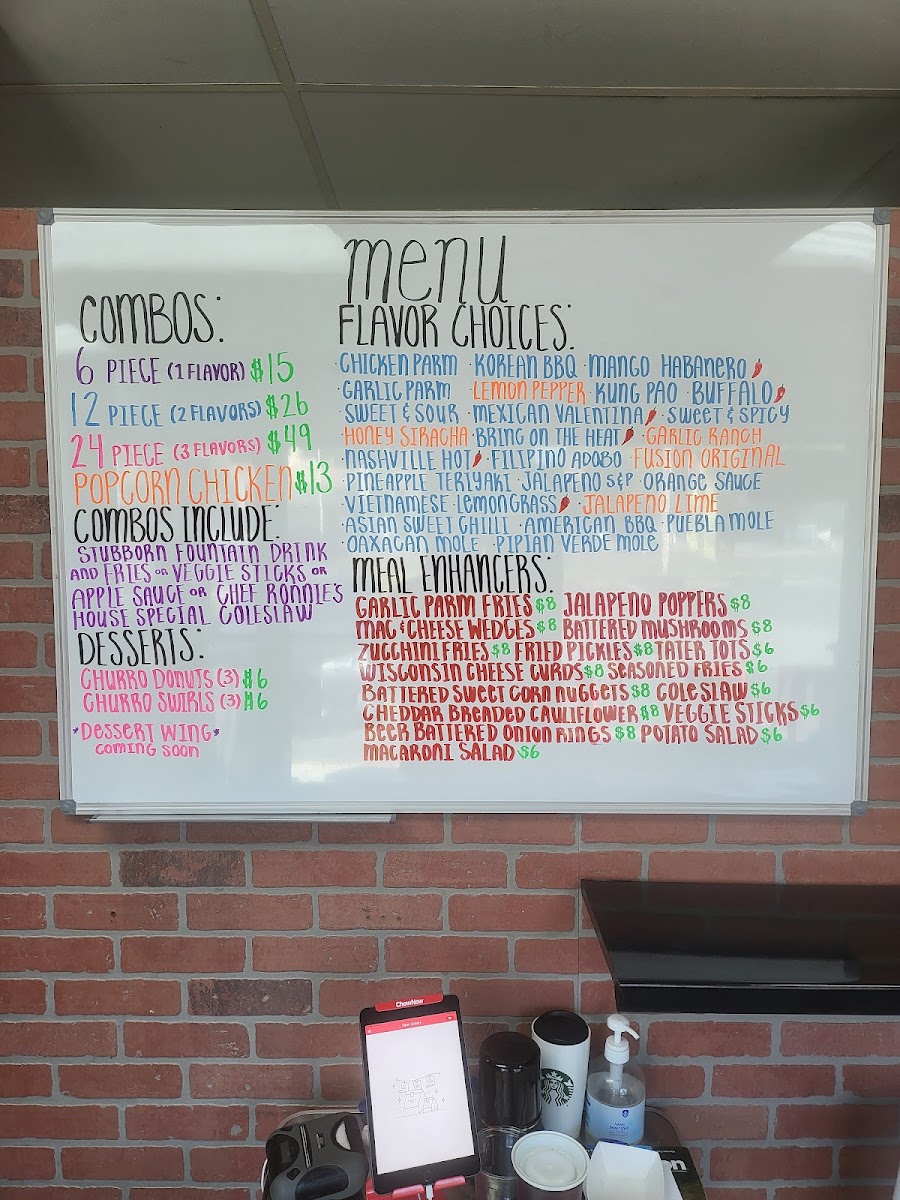 menu
COMBOS:
6 PIECE (1 FLAVOR) $15
12 PIECE (2 FLAVORS) $26
24 PIECE (3 FLAVORS) $49
POPCORN CHICKEN $13
COMBOS INCLUDE:
STUBBORN FOUNTAIN DRINK
AND FRIES OR VEGGIE STICKS OR
APPLE SAUCE OR CHEF RONNIE'S
HOUSE SPECIAL COLESLAW
DESSERTS:
CHURRO DONUTS (3) $6
CHURRO SWIRLS (3) $6
*DESSERT WING*
COMING SOON
FLAVOR CHOICES:
·CHICKEN PARM ·KOREAN BBQ ·MANGO HABANERO
·GARLIC PARM ·LEMON PEPPER ·KUNG PAO ·BUFFALO
·SWEET & SOUR ·MEXICAN VALENTINA ·SWEET & SPICY
·HONEY SIRACHA ·BRING ON THE HEAT ·GARLIC RANCH
·NASHVILLE HOT ·FILIPINO ADOBO ·FUSION ORIGINAL
·PINEAPPLE TERIYAKI ·JALAPENO S&P ·ORANGE SAUCE
·VIETNAMESE LEMONGRASS ·JALAPENO LIME
·ASIAN SWEET CHILLI ·AMERICAN BBQ ·PUEBLA MOLE
·OAXACAN MOLE ·PIPIAN VERDE MOLE
MEAL ENHANCERS:
GARLIC PARM FRIES $8 JALAPENO POPPERS $8
MAC & CHEESE WEDGES $8 BATTERED MUSHROOMS $8
ZUCCHINI FRIES $8 FRIED PICKLES $8 TATER TOTS $6
WISCONSIN CHEESE CURDS $8 SEASONED FRIES $6
BATTERED SWEET CORN NUGGETS $8 COLESLAW $6
CHEDDAR BREADED CAULIFLOWER $8 VEGGIE STICKS $6
BEER BATTERED ONION RINGS $8 POTATO SALAD $6
MACARONI SALAD $6
ChowNow